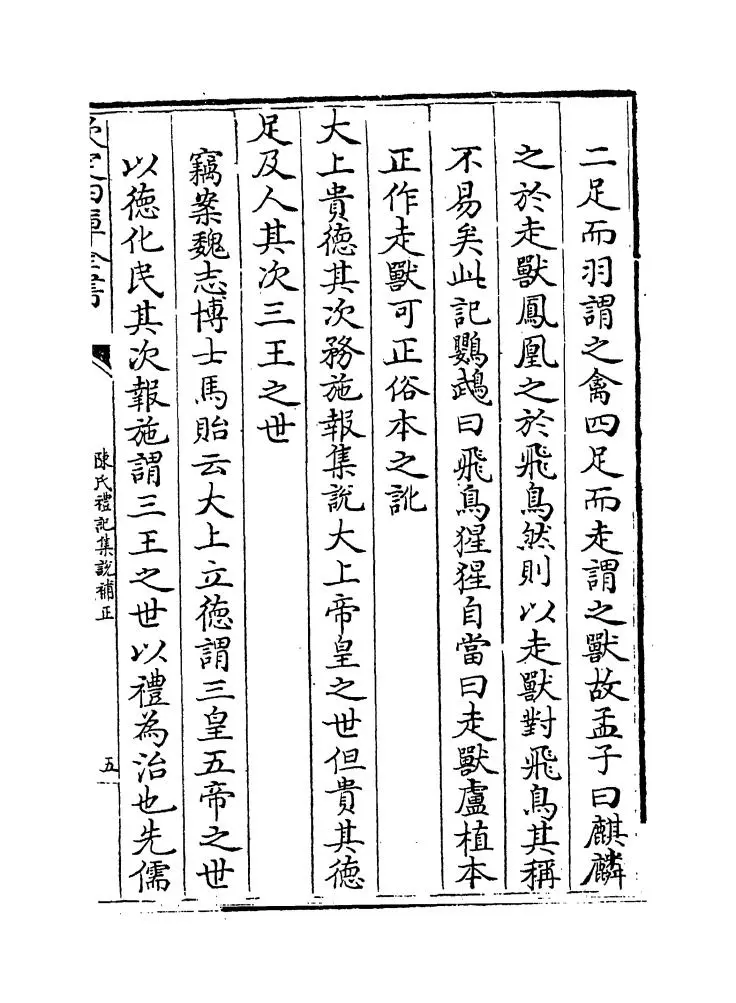 二足而羽謂之禽四足而走謂之獸故孟子曰麒麟
之於走獸鳳凰之於飛鳥然則以走獸對飛鳥其稱
不易矣此記鸚鵡曰飛鳥猩猩自當曰走獸盧植本
正作走獸可正俗本之訛
大上貴徳其次務施報集說大上帝皇之世但貴其徳
足及人其次三王之世
竊案魏志博士馬貽云大上立徳謂三皇五帝之世
以徳化民其次報施謂三王之世以禮為治也先儒
欽定四庫全書
陳氏禮記集說補正
五